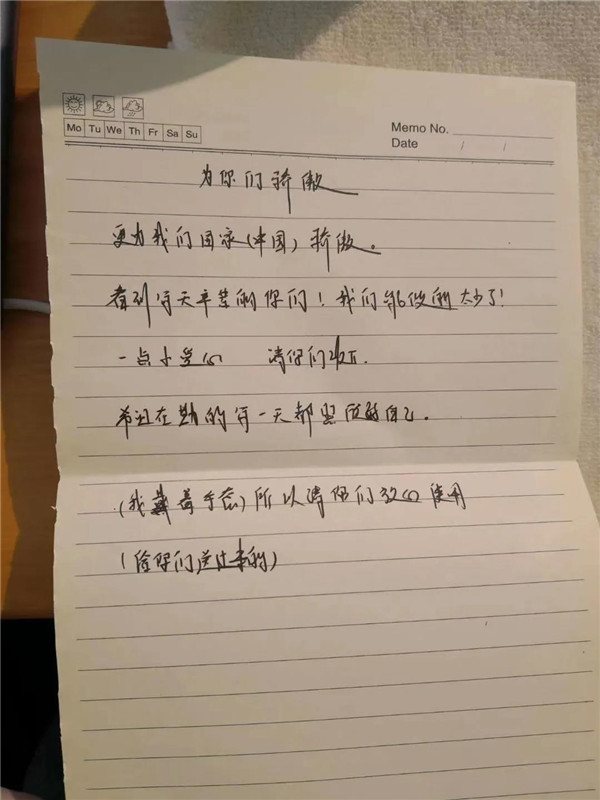 Mo Tu We Th Fr Sa Su
Memo No.
Date / /
为你们骄傲
更为我们国家(中国)骄傲。
看到每天辛苦的你们!我们能做的太少了!
一点小爱心 请你们收下.
希望在勤的每一天都照顾好自己.
(我戴着手套)所以请你们放心使用
(给你们送过来的)